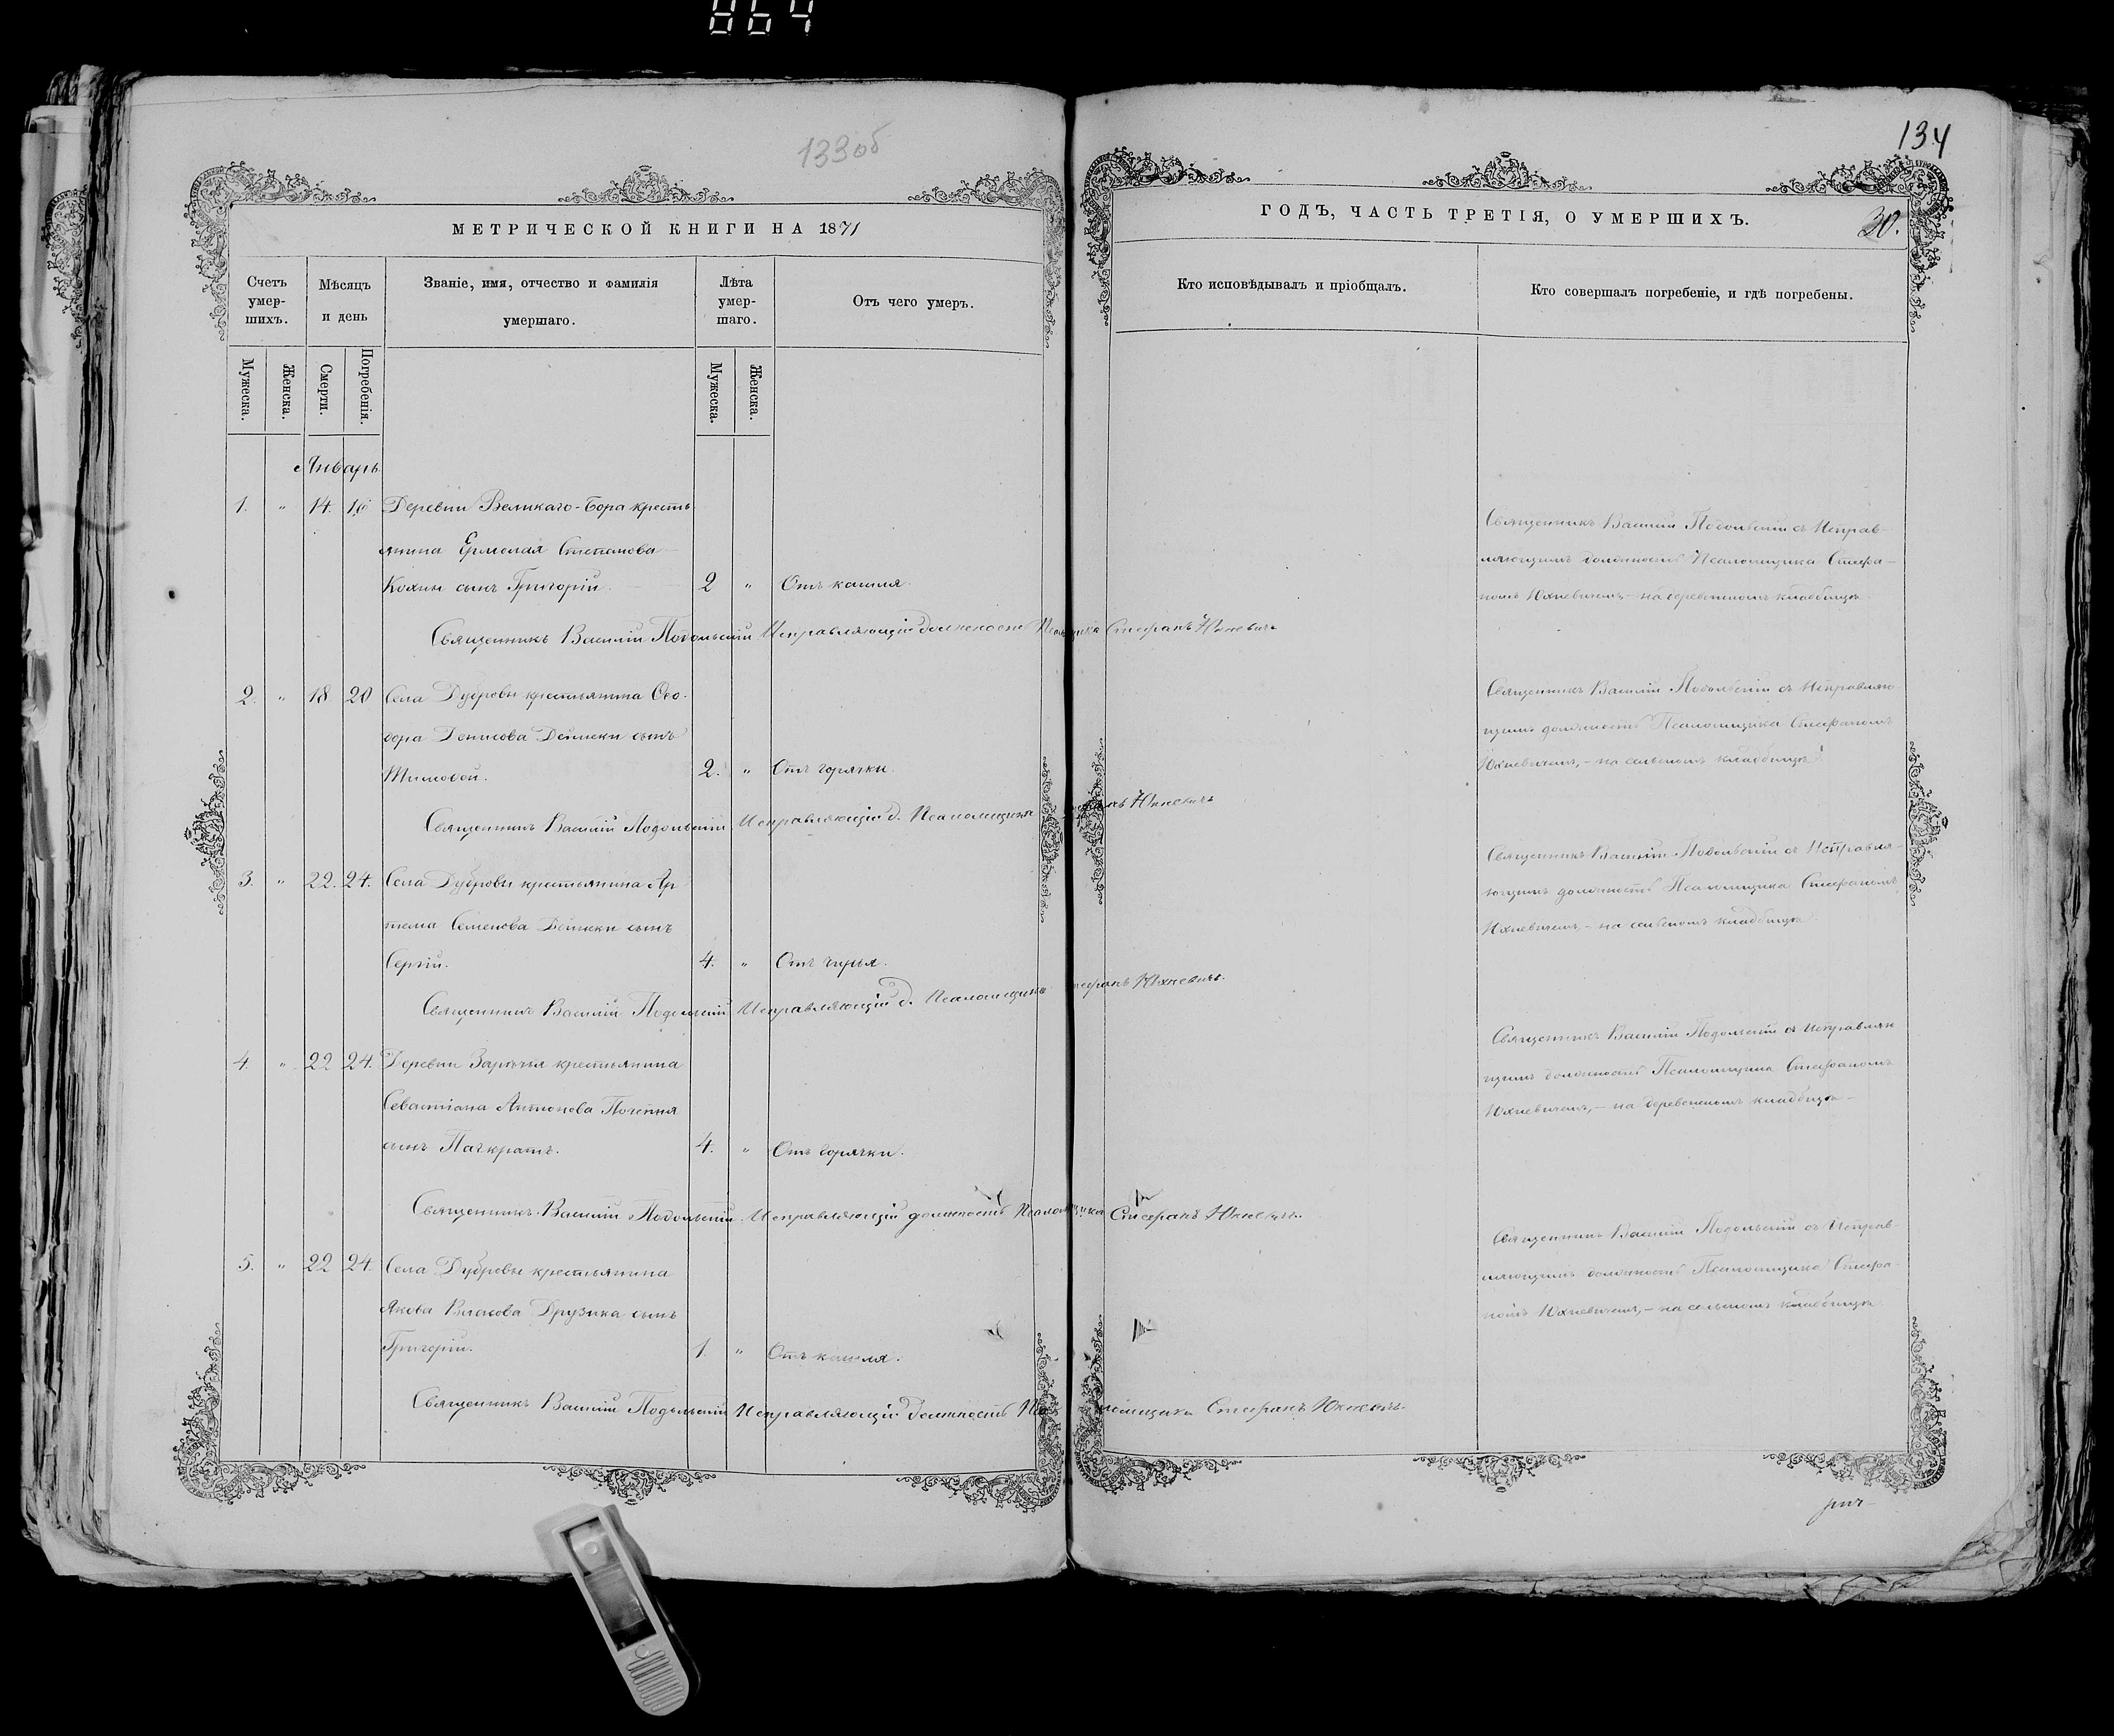 864
133об
134
МЕТРИЧЕСКОЙ КНИГИ НА 1871
ГОДЪ, ЧАСТЬ ТРЕТІЯ, О УМЕРШИХЪ.
30.
Счетъ умер-шихъ.
Мѣсяцъ и день
Званіе, имя, отчество и фамилія умершаго.
Лѣта умер-шаго.
Отъ чего умеръ.
Кто исповѣдывалъ и пріобщалъ.
Кто совершалъ погребеніе, и гдѣ погребены.
Мужеска.
Женска.
Смерти.
Погребенія.
Мужеска.
Женска.
Январь
1. " 14. 16 Деревни Великаго-Бора кресть
янина Ермолая Степанова
Кохны сынъ Григорій. 2 " Отъ кашля.
Священникъ Василій Подольскій съ Исправ-
ляющимъ должность Псаломщика Стефа-
номъ Юхневичемъ,- на деревенскомъ кладбищѣ
Священникъ Василій Подольскій Исправляющій должность Псаломщика Стефанъ Юхневичъ
2. " 18 20 Села Дубровы крестьянина Ѳео-
дора Денисова Дейнеки сынъ
Тимоѳей. 2. " Отъ горячки.
Священникъ Василій Подольскій съ Исправляю-
щимъ должность Псаломщика Стефаномъ
Юхневичемъ,- на сельскомъ кладбищѣ
Священникъ Василій Подольскій Исправляющій д. Псаломщика Стефанъ Юхневичъ
3. " 22. 24. Села Дубровы крестьянина Ар
тема Семенова Дейнеки сынъ
Сергій. 4. " Отъ чирья.
Священникъ Василій Подольскій съ Исправля-
ющимъ должность Псаломщика Стефаномъ
Юхневичемъ,- на сельскомъ кладбищѣ
Священникъ Василій Подольскій Исправляющій д. Псаломщика Стефанъ Юхневичъ.
4. " 22 24. Деревни Зарѣчья крестьянина
Севастіана Антонова
сынъ Панкратъ. 4. " Отъ горячки.
Священникъ Василій Подольскій съ Исправляю
щимъ должность Псаломщика Стефаномъ
Юхневичемъ,- на деревенскомъ кладбищѣ-
Священникъ Василій Подольскій Исправляющій должность Псаломщика Стефанъ Юхневичъ.
5. " 22 24. Села Дубровы крестьянина
Якова Власова Друзика сынъ
Григорій. 1. " Отъ кашля.
Священникъ Василій Подольскій съ Исправ-
ляющимъ должность Псаломщика Стефа-
номъ Юхневичемъ,- на сельскомъ кладбищѣ
Священникъ Василій Подольскій Исправляющій должность Псаломщика Стефанъ Юхневичъ.